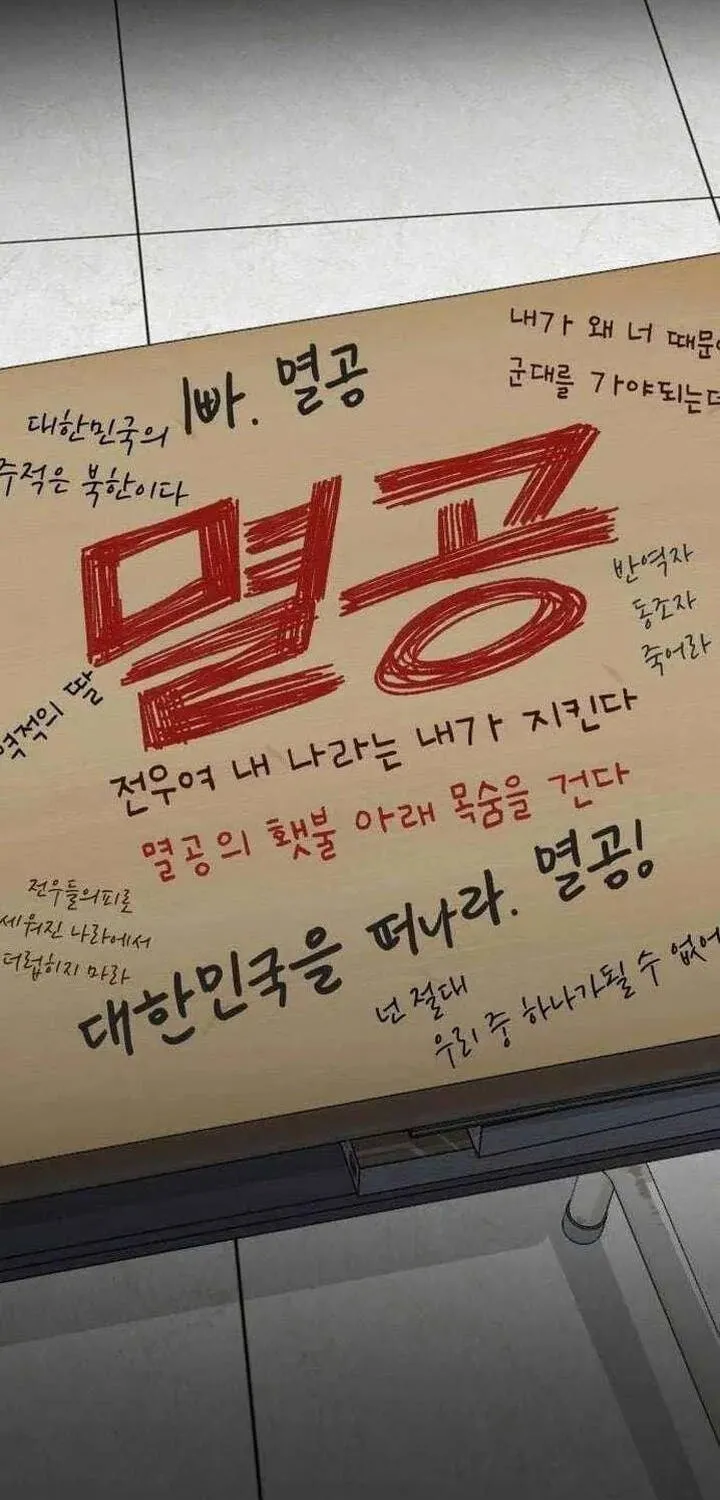 대한민국의
주적은 북한이다
빠. 멸공
내가 왜 너 때문
군대를 가야되는데
멸공
반역자
동조자
죽어라
역적의 딸
전우여 내 나라는 내가 지킨다
멸공의 횃불 아래 목숨을 건다
전우들의피로
세워진 나라에서
더럽히지 마라
대한민국을 떠나라. 멸공!
넌 절대
우리 중 하나가될 수 없어